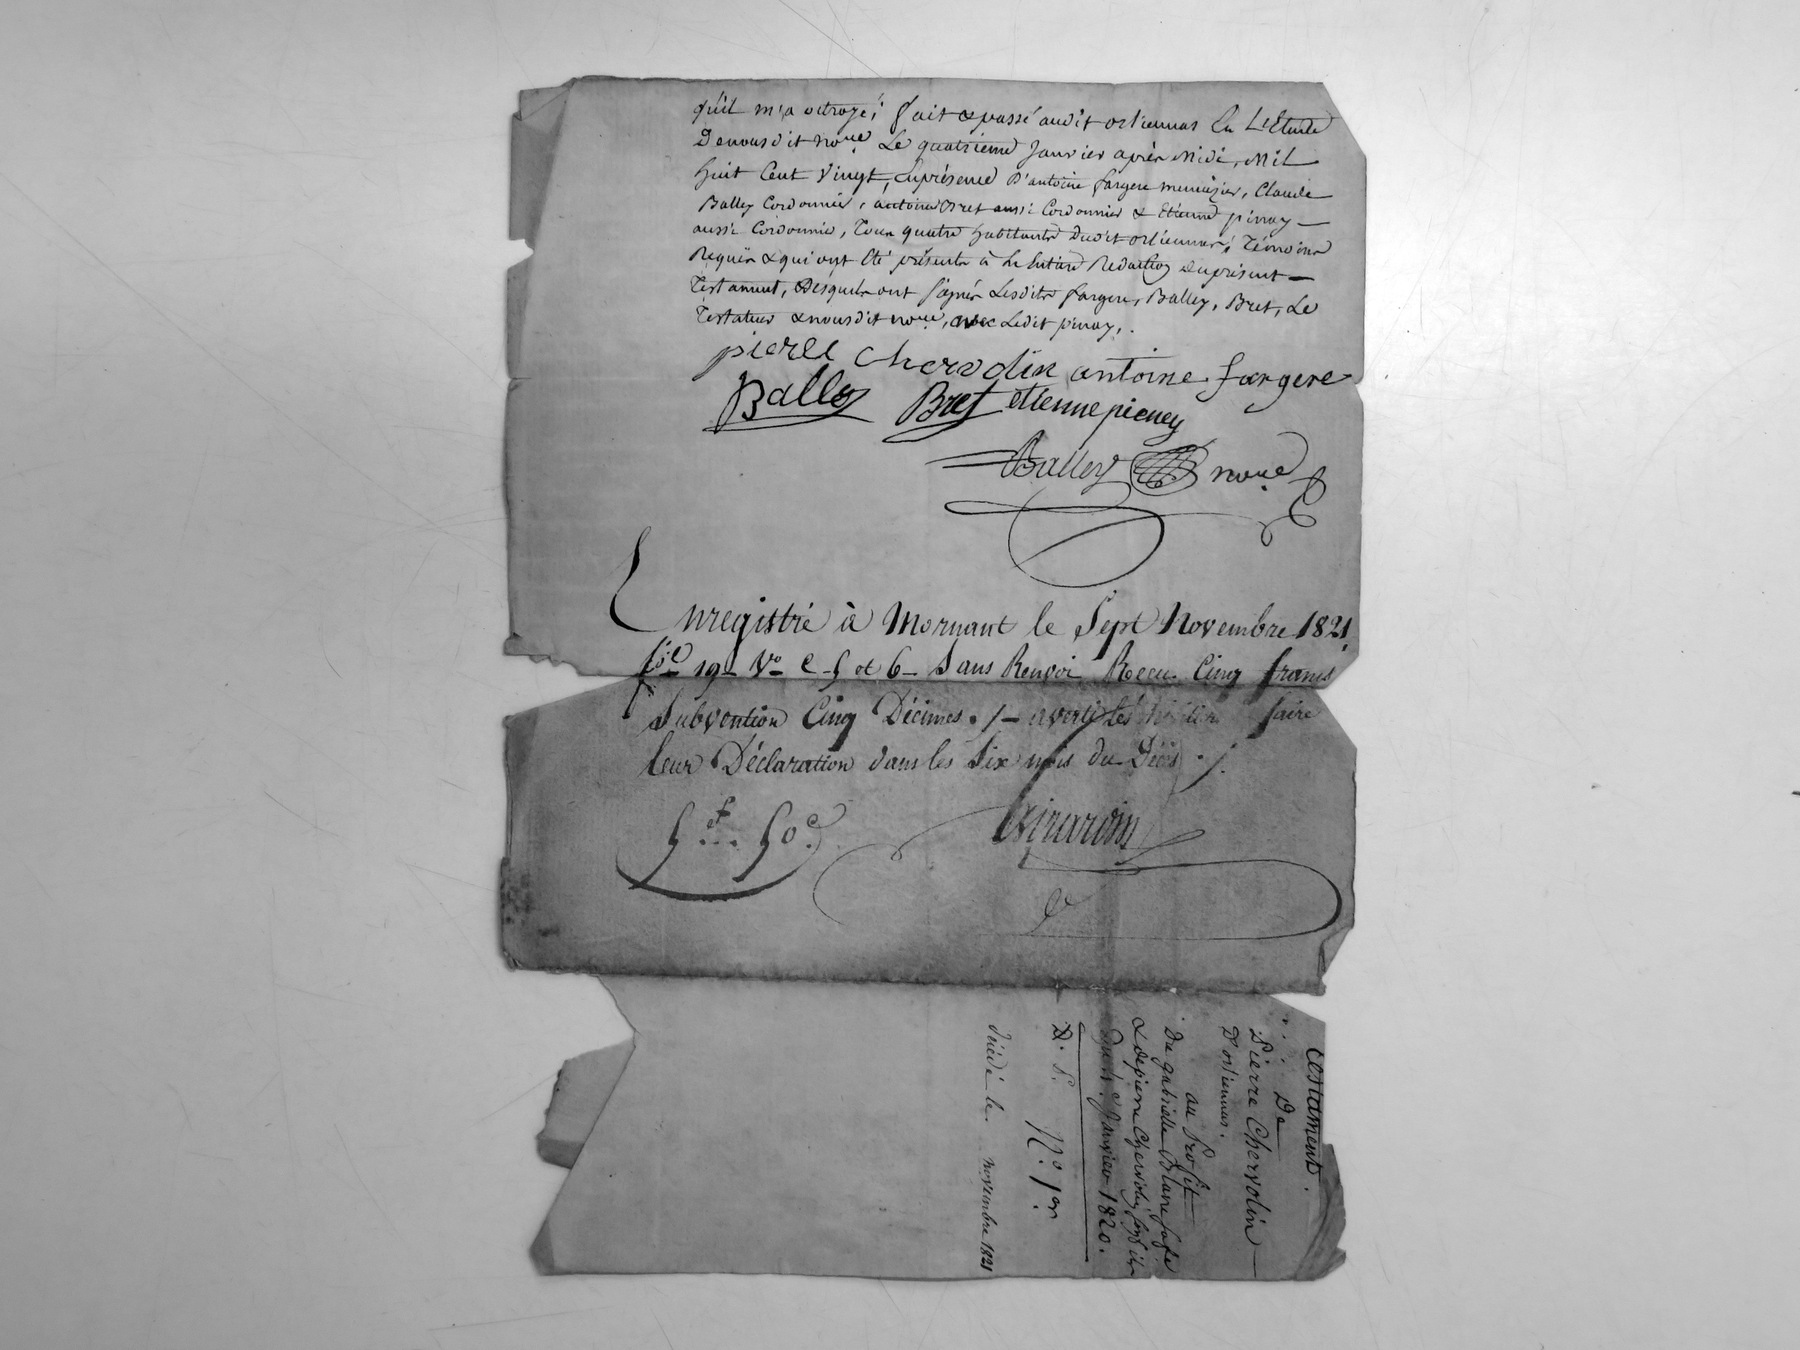 qu'il m'a octroyé; fait & passé audit orliennas En L'Etude
De nous dit no.re Le quatrieme Janvier après Midi, Mil
huit Cent Vingt, En présence D'antoine fargere menuizier, Claude
Balley Cordonnier, antoine Bret aussi Cordonnier & Etienne pinay
aussi Cordonnier, Tous quatre habitants dudit orliennas, Témoins
Requis & qui ont Eté présents à La Entiere Rédaction du présent
Testament, Desquels ont signés Lesdits fargere, Balley, Bret, Le
Testateur & nous dit no.re, avec Ledit pinay.
pierre Chervolin antoine fargere
Balley Bret etienne pieney
Balley no.re
Enregistré à Mornant le Sept Novembre 1821
f.o 19 V.o C. 5 et 6 Sans Renvoi Reçu Cinq francs
Subvention Cinq Décimes ./. averti les faire
leur Déclaration dans les Six mois du Décès ./.
5.f 50.c
Girardin
Testament.
De
Pierre Chervolin
D'orliennas.
au Profit
De gabrielle Blanc sa fe
& de pierre Chervolin son fils
Du 4.e Janvier 1820.
D. P. N.o 1.er
Décédé le novembre 1821